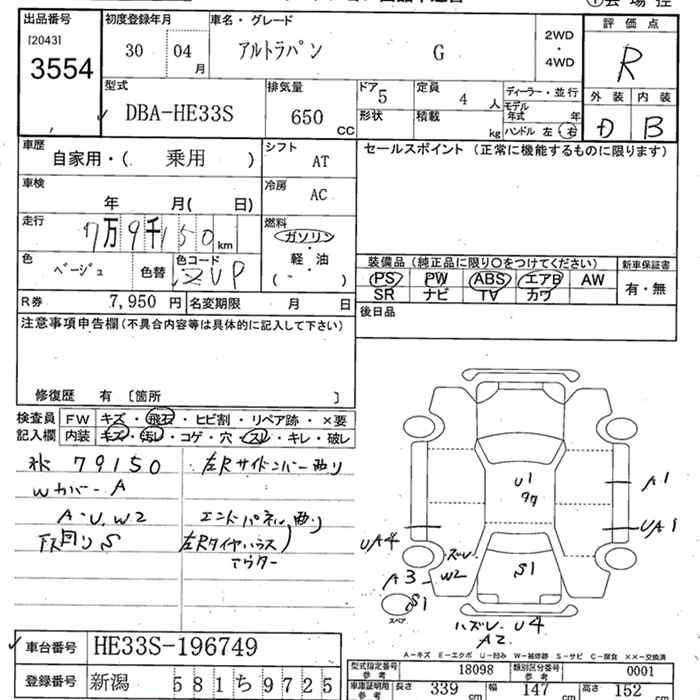 出品番号 初度登録年月 車名・グレード 評価点
[2043] 3554 30 04月 アルトラパン G 2WD・4WD R
型式 排気量 ドア 5 定員 4人 ディーラー・並行 外装 内装
DBA-HE33S 650 CC 形状 積載 kg モデル年式 年 D B
ハンドル 左 右
車歴 シフト セールスポイント(正常に機能するものに限ります)
自家用・( 乗用 ) AT
車検 年 月( 日) 冷房 AC
走行 7万9千150km 燃料 ガソリン
色 ベージュ 色替 色コード ZVP 軽・油 ( )
装備品(純正品に限り○をつけてください) 新車保証書
PS PW ABS エアB AW 有・無
SR ナビ TV カワ
R券 7,950円 名変期限 月 日 後日品
注意事項申告欄(不具合内容等は具体的に記入して下さい)
修復歴 有 〔箇所 〕
検査員 FW キズ・飛石・ヒビ割・リペア跡・×要
記入欄 内装 キズ・汚レ・コゲ・穴・スレ・キレ・破レ
79150 左Rサイドメンバー曲り
Wカバー A
A・U、W2 エンドパネル曲り
下回りS 左Rタイヤハウス
アウター
U1
A1
UA1
UA4
ズレ
W2
A3
S1
S1
スペア
ハズレ U4
A2
A-キズ E-エクボ U-凹み W-補修跡 S-サビ C-腐食 ××-交換済
車台番号 HE33S-196749
登録番号 新潟 581ち9725
型式指定番号 参考 18098 類別区分番号 参考 0001
車庫証明用 参考 長さ 339cm 幅 147cm 高さ 152cm